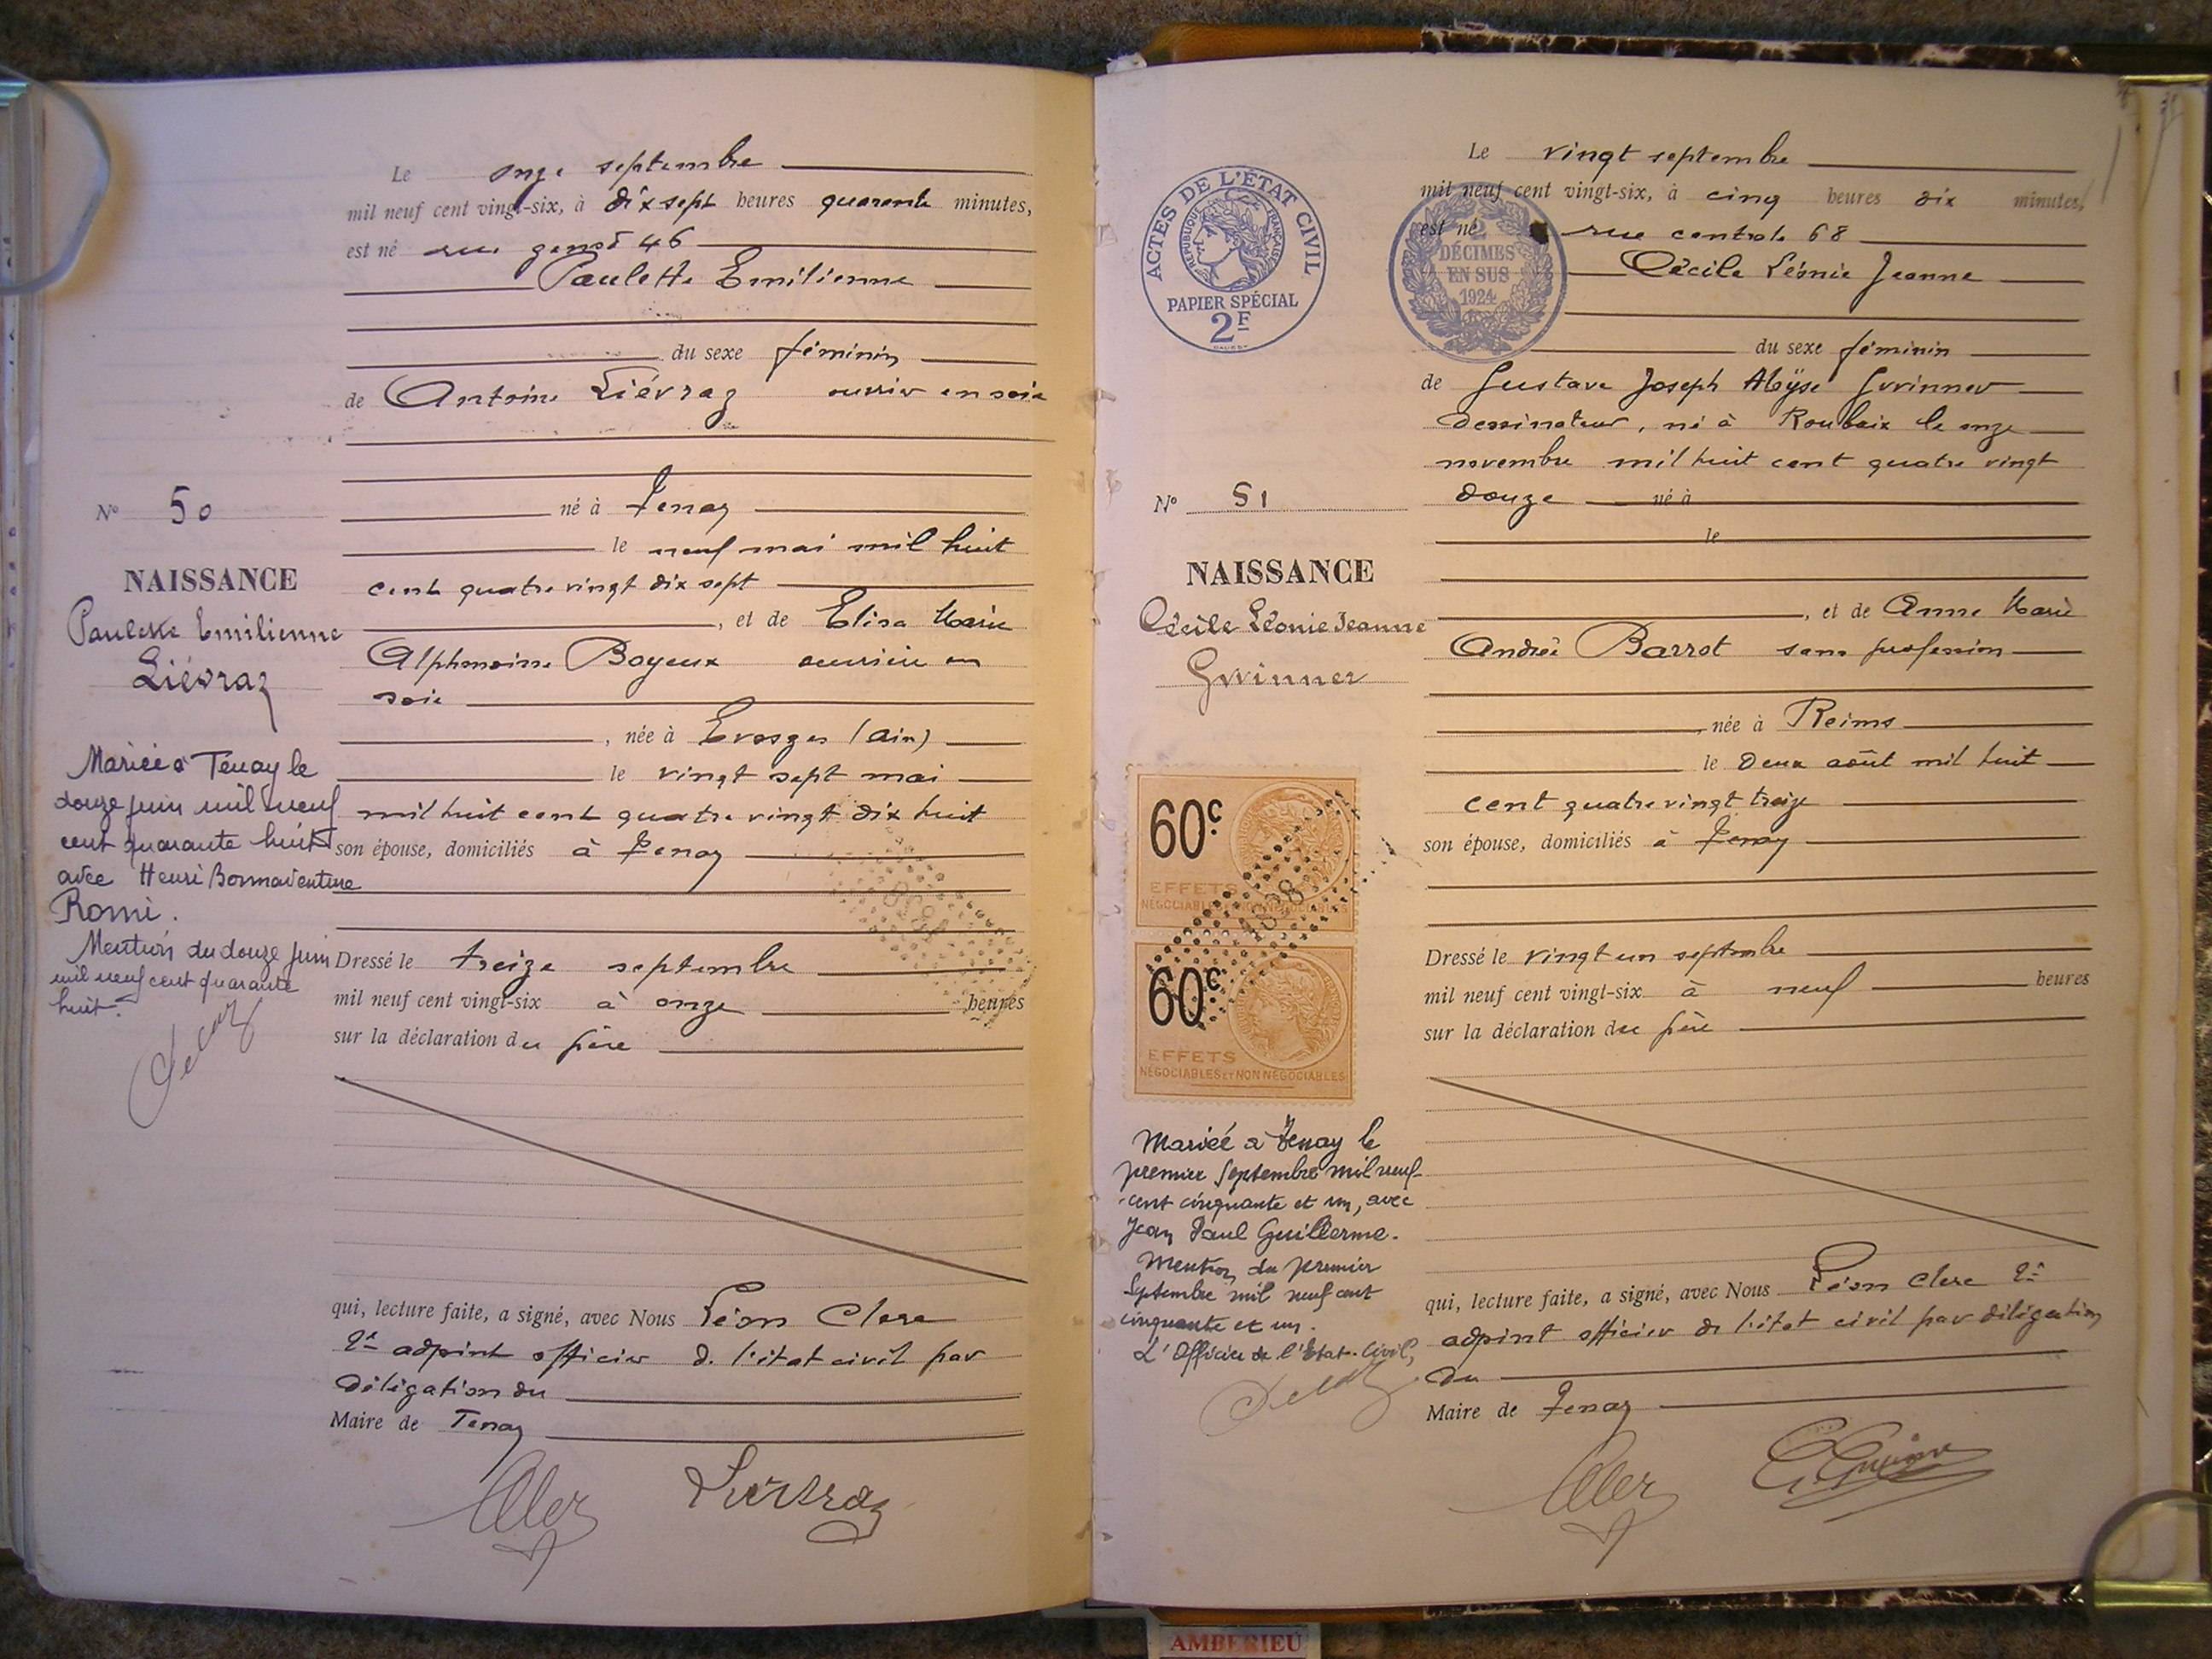 Le onze septembre
mil neuf cent vingt-six, à dix sept heures quarante minutes,
est né rue gensd 46
Paulette Emilienne
du sexe féminin
de Antoine Liévraz ouvrier en soie
né à Tenay
le neuf mai mil huit
cent quatre vingt dix sept
, et de Elisa Marie
Alphonsine Boyeux ouvrière en
soie
, née à Evosges (Ain)
le vingt sept mai
mil huit cent quatre vingt dix huit
son épouse, domiciliés à Tenay
Dressé le treize septembre
mil neuf cent vingt-six à onze heures
sur la déclaration du père
qui, lecture faite, a signé, avec Nous Léon Clerc
2e adjoint officier de l'état civil par
délégation du
Maire de Tenay
Clerc Liévraz
No 50
NAISSANCE
Paulette Emilienne
Liévraz
Mariée à Tenay le
douze juin mil neuf
cent quarante huit
avec Henri Bonnaventure
Romi.
Mention du douze juin
mil neuf cent quarante
huit.
ACTES DE L'ÉTAT CIVIL
RÉPUBLIQUE FRANÇAISE
PAPIER SPÉCIAL
2F
2
DÉCIMES
EN SUS
1924
Le vingt septembre
mil neuf cent vingt-six, à cinq heures dix minutes,
est né rue centrale 68
Cécile Léonie Jeanne
du sexe féminin
de Gustave Joseph Aloÿse Gwinner
dessinateur, né à Roubaix le onze
novembre mil huit cent quatre vingt
douze né à
le
, et de Anne Marie
Andrée Barrot sans profession
, née à Reims
le deux août mil huit
cent quatre vingt treize
son épouse, domiciliés à Tenay
Dressé le vingt un septembre
mil neuf cent vingt-six à neuf heures
sur la déclaration du père
qui, lecture faite, a signé, avec Nous Léon Clerc 2e
adjoint officier de l'état civil par délégation
du
Maire de Tenay
Clerc G. Gwinner
No 51
NAISSANCE
Cécile Léonie Jeanne
Gwinner
60c
EFFETS
NÉGOCIABLES ET NON NÉGOCIABLES
60c
EFFETS
NÉGOCIABLES ET NON NÉGOCIABLES
Mariée à Tenay le
premier Septembre mil neuf
cent cinquante et un, avec
Jean Paul Guillerme.
Mention du premier
Septembre mil neuf cent
cinquante et un.
L'Officier de l'Etat-Civil,
AMBERIEU